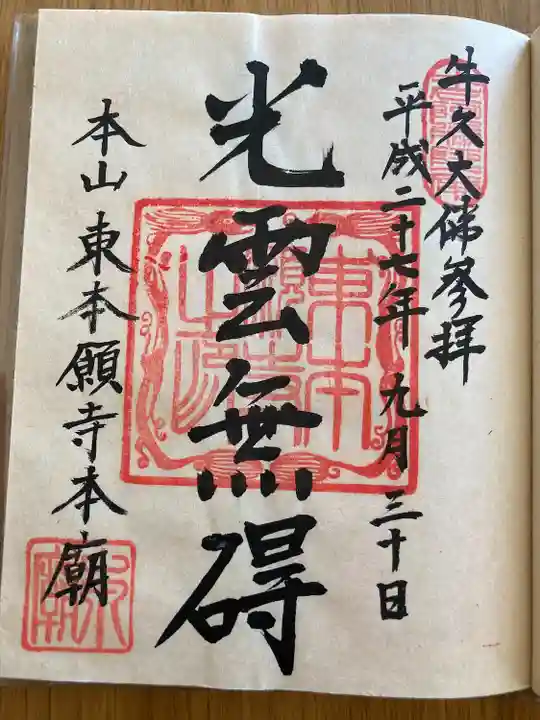 牛久大佛参拝
平成二十七年 九月 三十日
光雲無碍
本山 東本願寺本廟